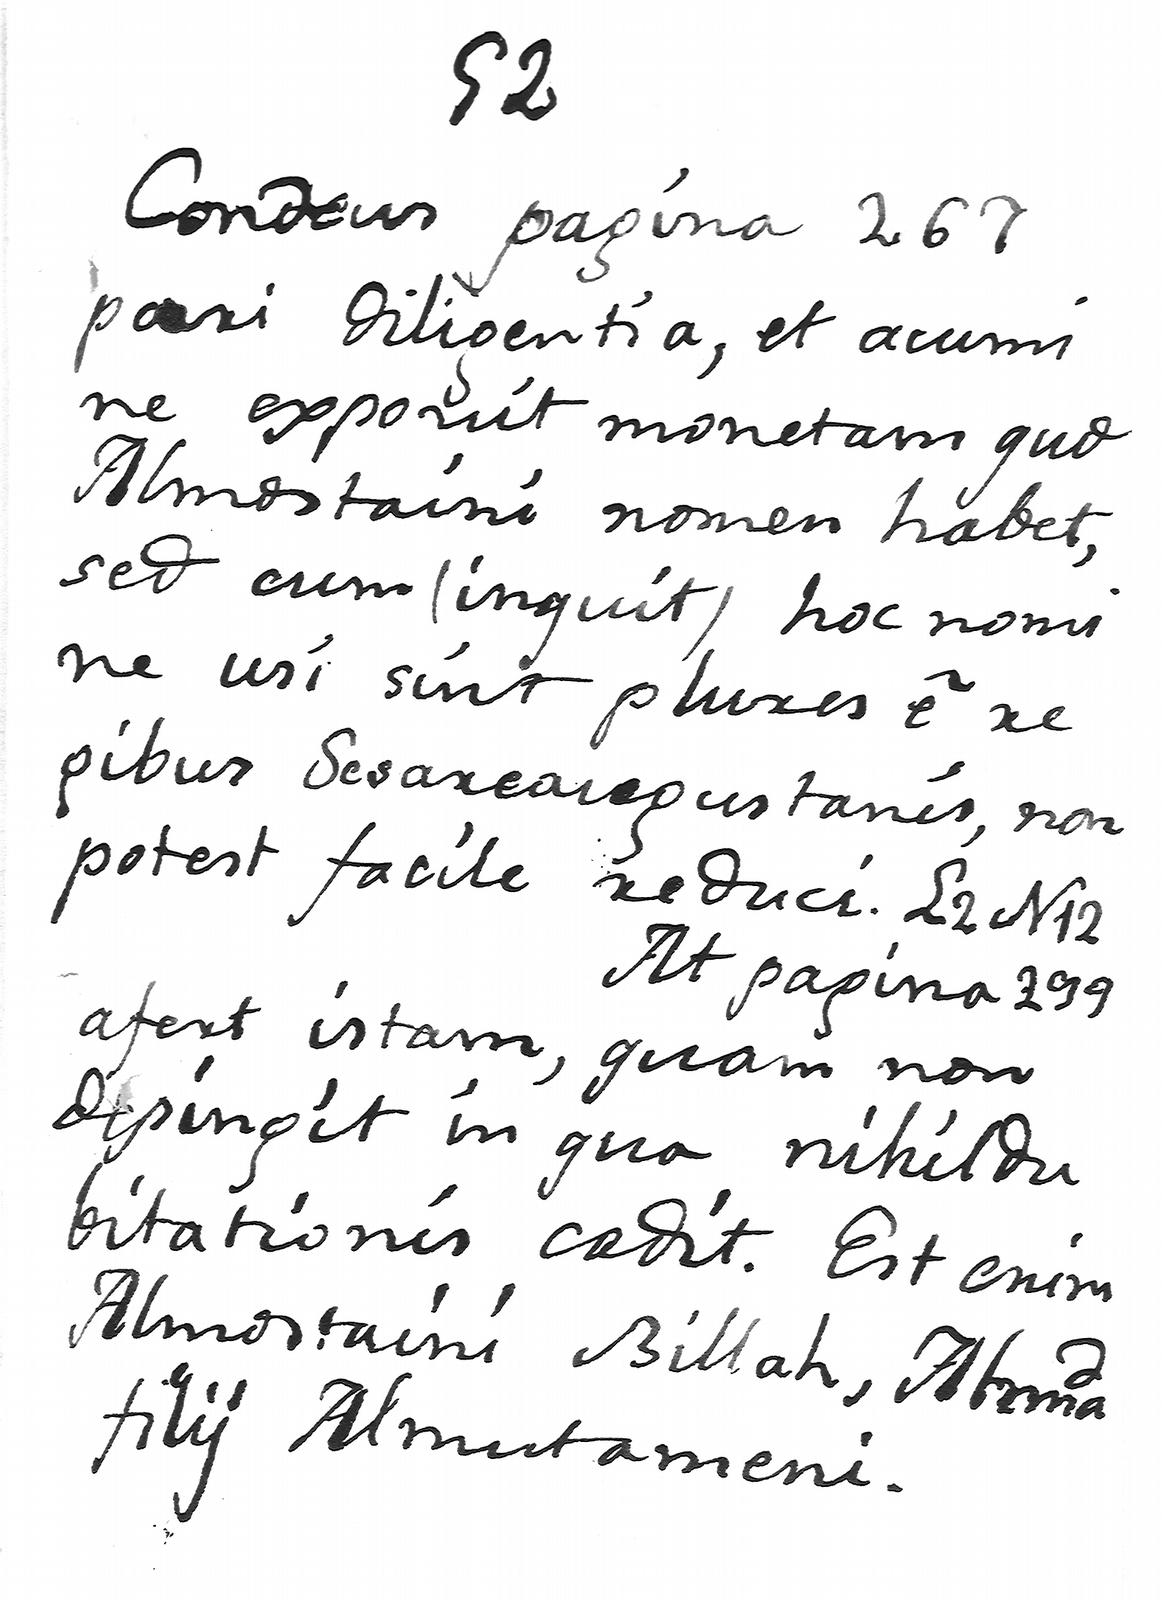 52
Condeus pagina 267
pari diligentia, et acumi
ne exposuit monetam quæ
Almostaini nomen habet,
sed cum (inquit) hoc nomi
ne usi sint plures ẽ re
gibus Sesaraugustanis, non
potest facile reduci. L2 N12
At pagina 299
afert istam, quam non
depingit in qua nihil du
bitationis cadit. Est enim
Almostaini Billah,
filij Almutameni.